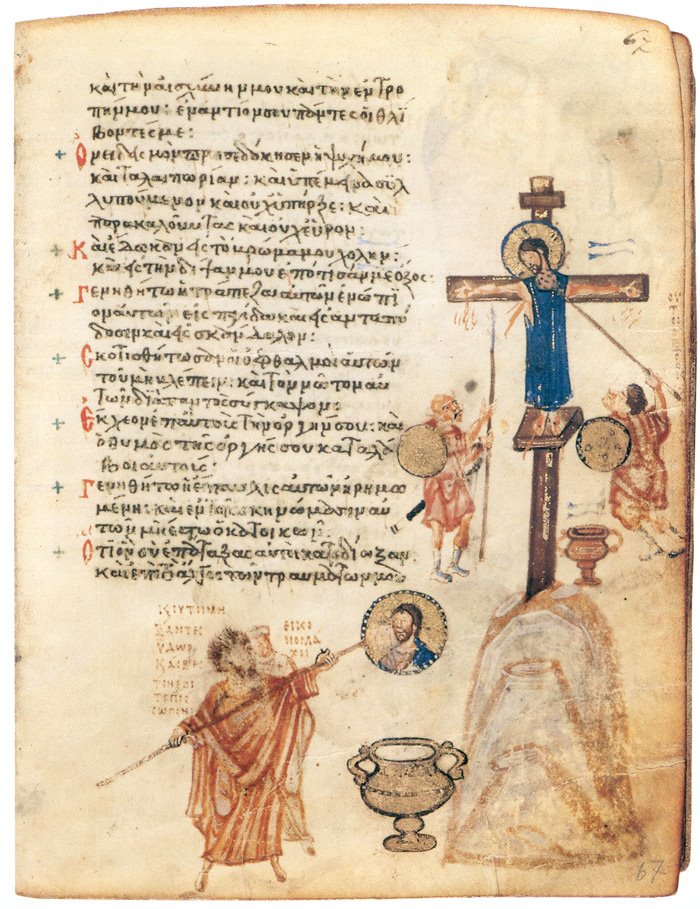 62
καὶ τὴν αἰσχύνην μου καὶ τὴν ἐντρο
πήν μου: ἐναντίον σου πάντες οἱ θλί
βοντες με:
Ὀνειδισμὸν προσεδόκησεν ἡ ψυχή μου:
καὶ ταλαιπωρίαν: καὶ ὑπέμεινα συλ
λυπούμενον καὶ οὐχ ὑπῆρξε: καὶ
παρακαλοῦντας καὶ οὐχ εὗρον:
Καὶ ἔδωκαν εἰς τὸ βρῶμα μου χολήν:
καὶ εἰς τὴν δίψαν μου ἐπότισάν με ὄξος:
Γενηθήτω ἡ τράπεζα αὐτῶν ἐνώπι
ον αὐτῶν εἰς παγίδα καὶ εἰς ἀνταπό
δοσιν καὶ εἰς σκάνδαλον:
Σκοτισθήτωσαν οἱ ὀφθαλμοὶ αὐτῶν
τοῦ μὴ βλέπειν: καὶ τὸν νῶτον αὐ
τῶν διὰ παντὸς σύγκαμψον:
Ἔκχεον ἐπ' αὐτοὺς τὴν ὀργήν σου: καὶ
ὁ θυμὸς τῆς ὀργῆς σου καταλά
βοι αὐτούς:
Γενηθήτω ἡ ἔπαυλις αὐτῶν ἠρημω
μένη: καὶ ἐν τοῖς σκηνώμασιν αὐ
τῶν μὴ ἔστω ὁ κατοικῶν:
Ὅτι ὃν σὺ ἐπάταξας αὐτοὶ κατεδίωξαν
καὶ ἐπὶ τὸ ἄλγος τῶν τραυμάτων μου
ΞΑΝΤΕΣ
ΥΔΩΡ
ΕΙΚΟ
ΝΟΜΑ
ΧΟΙ
67